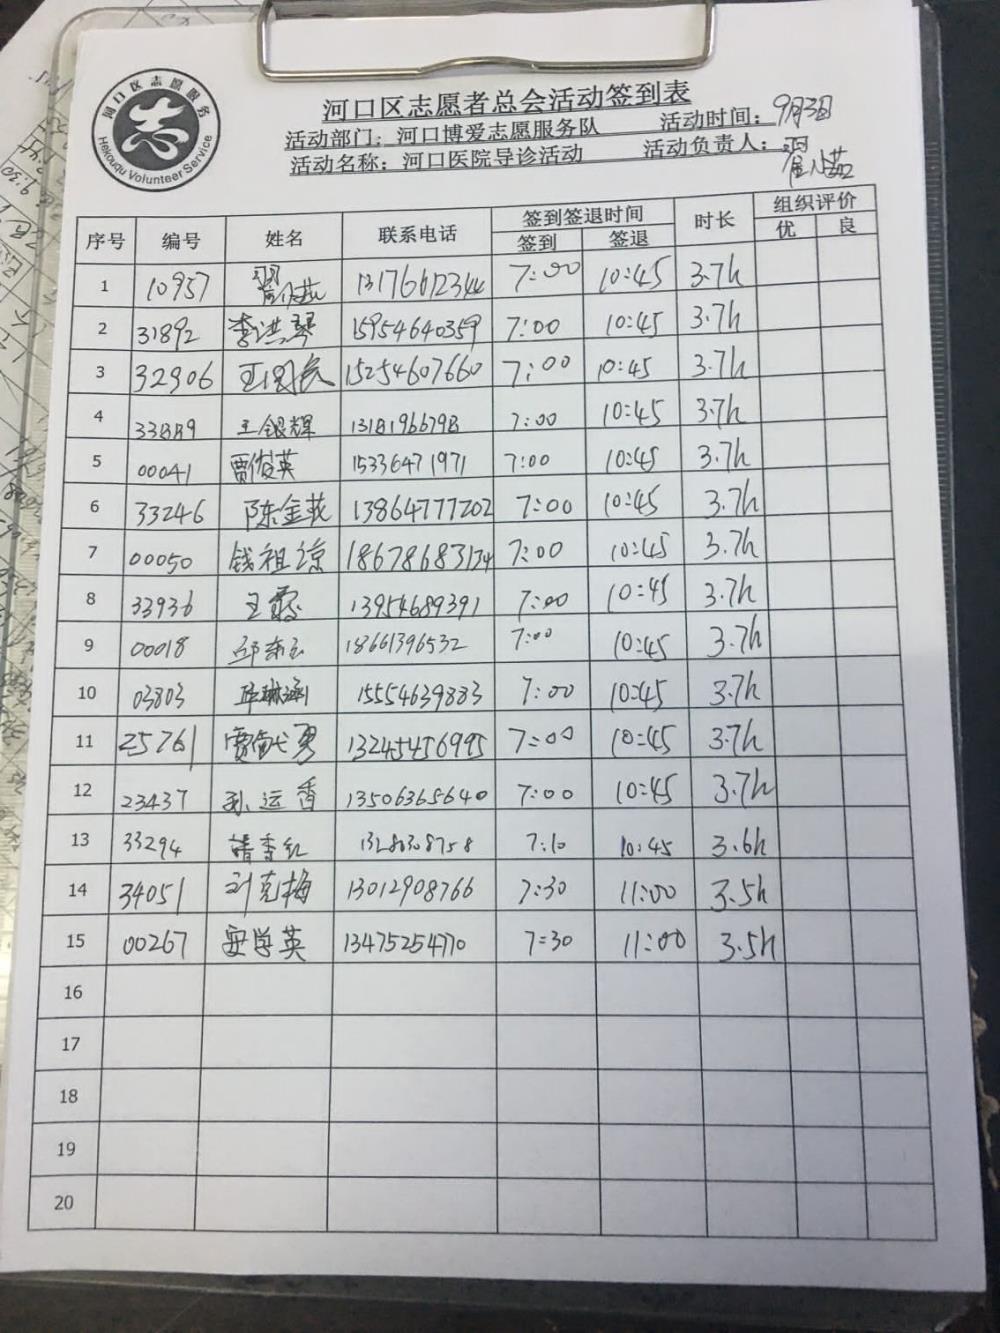 河口区志愿服务
志
Hekouqu Volunteer Service
河口区志愿者总会活动签到表
活动部门：河口博爱志愿服务队 活动时间：9月3日
活动名称：河口医院导诊活动 活动负责人：
序号 编号 姓名 联系电话 签到签退时间 时长 组织评价
签到 签退 优 良
1 10957 13176612344 7:00 10:45 3.7h
2 31892 李洪琴 15954640359 7:00 10:45 3.7h
3 32906 15254607660 7:00 10:45 3.7h
4 33889 王银辉 7:00 10:45 3.7h
5 00041 贾俊英 15336471971 7:00 10:45 3.7h
6 33246 13864777202 7:00 10:45 3.7h
7 00050 钱祖凉 18678683134 7:00 10:45 3.7h
8 33936 王霞 13954689391 7:00 10:45 3.7h
9 00018 18661396532 7:00 10:45 3.7h
10 03803 15554639883 7:00 10:45 3.7h
11 25761 13245456995 7:00 10:45 3.7h
12 23437 孙运香 13506365640 7:00 10:45 3.7h
13 33294 7:10 10:45 3.6h
14 34051 刘克梅 13012908766 7:30 11:00 3.5h
15 00267 安学英 13475254770 7:30 11:00 3.5h
16
17
18
19
20